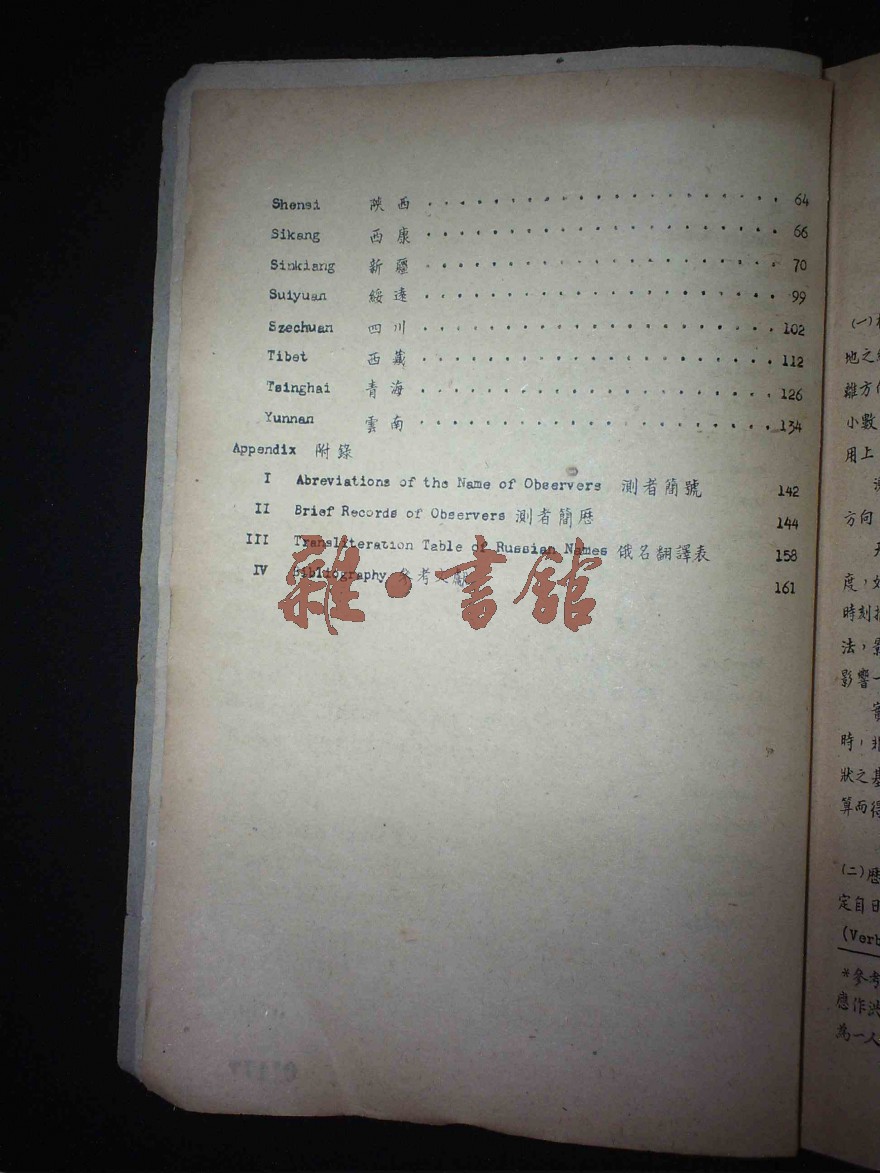 Shensi 陝西 64
Sikang 西康 66
Sinkiang 新疆 70
Suiyuan 綏遠 99
Szechuan 四川 102
Tibet 西藏 112
Tsinghai 青海 126
Yunnan 雲南 134
Appendix 附錄
I Abreviations of the Name of Observers 測者簡號 142
II Brief Records of Observers 測者簡歷 144
III Transliteration Table of Russian Names 俄名翻譯表 158
IV Bibliography 參考文獻 161
雜·書館
(一)
地之
離方
小數
用上
方向
度，
時刻
法，
影響一
時，
狀之基
算而得
(二)歷
定自日
(Verb
*參考
應作
為一人